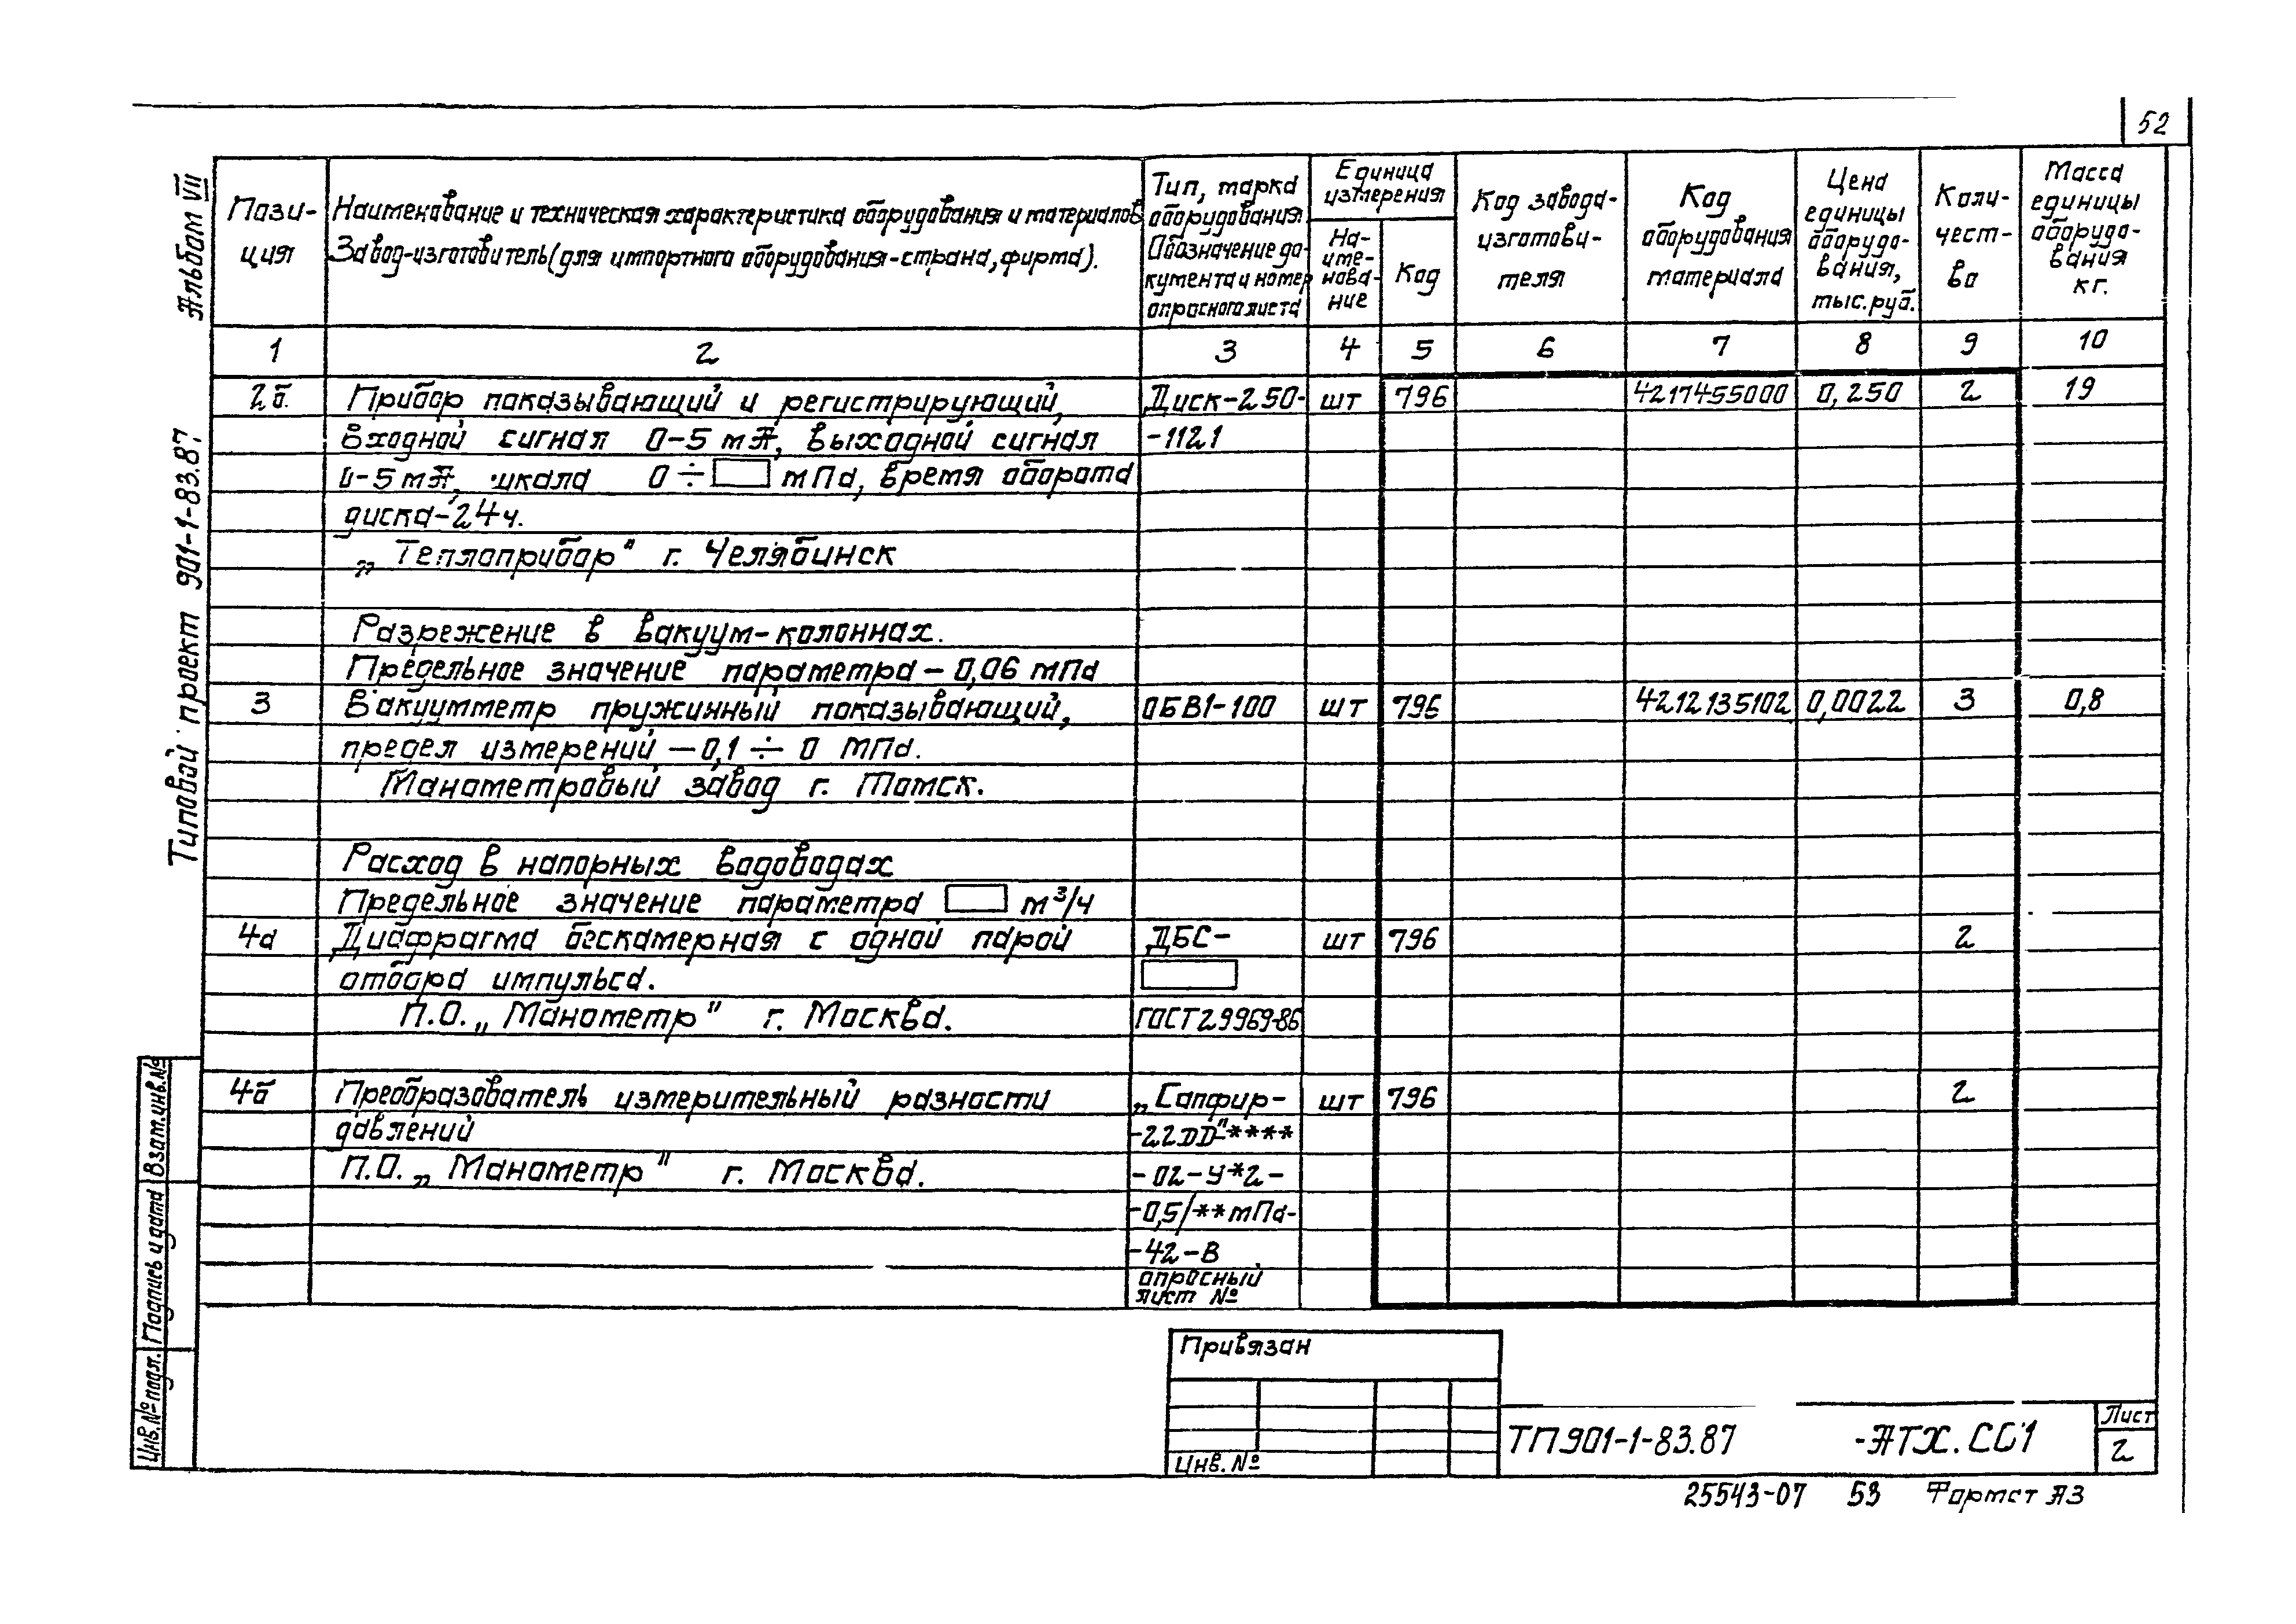 52
Альбом VII
Типовой проект 901-1-83.87.
Пози-
ция
Наименование и техническая характеристика оборудования и материалов
Завод-изготовитель (для импортного оборудования-страна, фирма).
Тип, марка
оборудования.
Обозначение до-
кумента и номер
опросного листа
Единица
измерения
На-
име-
нова-
ние
Код
Код завода-
изготови-
теля
Код
оборудования
материала
Цена
единицы
оборудо-
вания,
тыс.руб.
Коли-
чест-
во
Масса
единицы
оборудо-
вания
кг.
1 2 3 4 5 6 7 8 9 10
2б. Прибор показывающий и регистрирующий, Диск-250- шт 796 4217455000 0,250 2 19
входной сигнал 0-5 мА, выходной сигнал -1121
0-5 мА, шкала 0÷ мПа, время оборота
диска-24ч.
„Теплоприбор" г. Челябинск
Разрежение в вакуум-колоннах.
Предельное значение параметра - 0,06 мПа
3 Вакуумметр пружинный показывающий, ОБВ1-100 шт 796 4212135102 0,0022 3 0,8
предел измерений -0,1 ÷ 0 МПа.
Манометровый завод г. Томск.
Расход в напорных водоводах
Предельное значение параметра м³/ч
4а Диафрагма бескамерная с одной парой ДБС- шт 796 2
отбора импульса.
П.О. „Манометр" г. Москва. ГОСТ29969-86
4б Преобразователь измерительный разности „Сапфир- шт 796 2
давлений -22ДД"-****
П.О. „Манометр" г. Москва. -02-У*2-
-0,5/**мПа-
-42-В
опросный
лист №
Взам.инв.№
Подпись и дата
Инв.№ подл.
Привязан
Инв.№
ТП901-1-83.87 -АТХ.СО1
Лист
2
25543-07 53 Формат А3